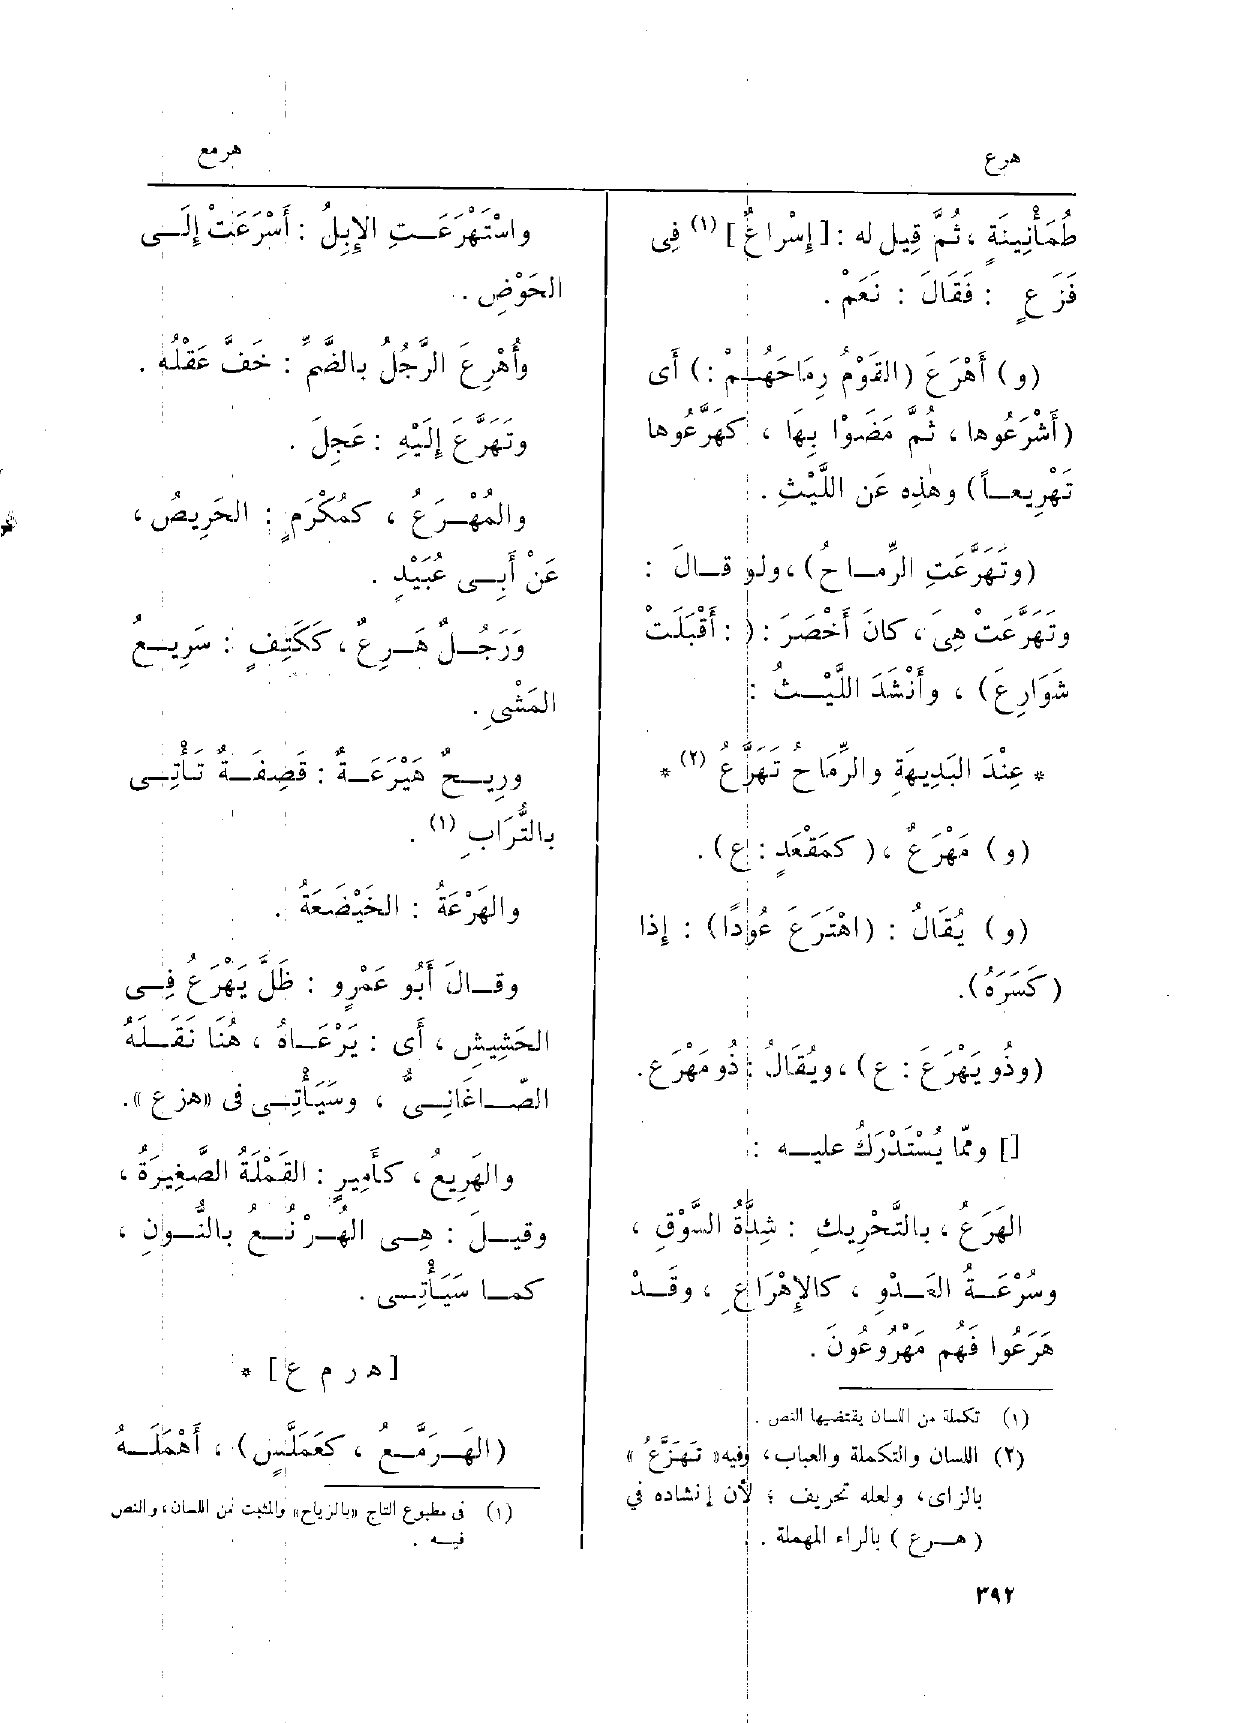 هرع
هرمع
طُمَأْنِينَةٍ ، ثُمَّ قِيل له : [ إِسْراعٌ ] (١) فِى
فَزَعٍ : فَقَالَ : نَعَمْ .
(و) أَهْرَعَ (القَوْمُ رِمَاحَهُمْ :) أَى
(أَشْرَعُوها ، ثُمَّ مَضَوْا بِهَا ، كهَرَّعُوها
تَهْرِيعاً) وهٰذِه عَن اللَّيْثِ .
(وتَهَرَّعَتِ الرِّماحُ) ، ولو قالَ :
وتَهَرَّعَتْ هِىَ ، كانَ أَخْصَرَ : ( : أَقْبَلَتْ
شَوَارِعَ) ، وأَنْشَدَ اللَّيْثُ :
* عِنْدَ البَدِيهَةِ والرِّمَاحُ تَهَرَّعُ (٢) *
(و) مَهْرَعٌ ، ( كمَقْعَدٍ : ع) .
(و) يُقَالُ : (اهْتَرَعَ عُودًا) : إِذا
( كَسَرَهُ).
(وذُو يَهْرَعَ : ع) ، ويُقَالُ : ذُو مَهْرَع.
[] وممّا يُسْتَدْرَكُ عليه :
الهَرَعُ ، بالتَّحْرِيكِ : شِدَّةُ السَّوْقِ ،
وسُرْعَةُ العَدْوِ ، كالإِهْرَاعِ ، وقَدْ
هَرَعُوا فَهُم مَهْرُوعُونَ .
(١) تكملة من اللسان يقتضيها النص .
(٢) اللسان والتكملة والعباب، وفيه« تَهَزَّعُ »
بالزاى، ولعله تحريف ؛ لأن إنشاده في
( هرع ) بالراء المهملة .
٣٩٢
واسْتَهْرَعَتِ الإِبِلُ : أَسْرَعَتْ إِلَى
الحَوْضِ .
وأُهْرِعَ الرَّجُلُ بالضَّمِّ : خَفَّ عَقْلُهُ .
وتَهَرَّعَ إِلَيْهِ : عَجِلَ .
والمُهْرَعُ ، كمُكْرَمٍ : الحَرِيصُ ،
عَنْ أَبِى عُبَيْدٍ .
ورَجُلٌ هَرِعٌ ، ككَتِفٍ : سَرِيعُ
المَشْىِ .
ورِيحٌ هَيْرَعَةٌ : قَصِفَةٌ تَأْتِى
بالتُّرَابِ (١) .
والهَرْعَةُ : الخَيْضَعَةُ .
وقالَ أَبُو عَمْرٍو : ظَلَّ يَهْرَعُ فِى
الحَشِيشِ ، أَى : يَرْعَاهُ ، هُنَا نَقَلَهُ
الصّاغَانِىُّ ، وسَيَأْتِى فى «هزع».
والهَرِيعُ ، كأَمِيرٍ : القَمْلَةُ الصَّغِيرَةُ ،
وقِيلَ : هِى الهُرْنُع بالنُّونِ ،
كما سَيَأْتِى .
[ هـ ر م ع ] *
(الهَرَمَّعُ ، كعَمَلَّسٍ) ، أَهْمَلَهُ
(١) فى مطبوع التاج «بالرياح» والمثبت من اللسان، والنص
فيه .